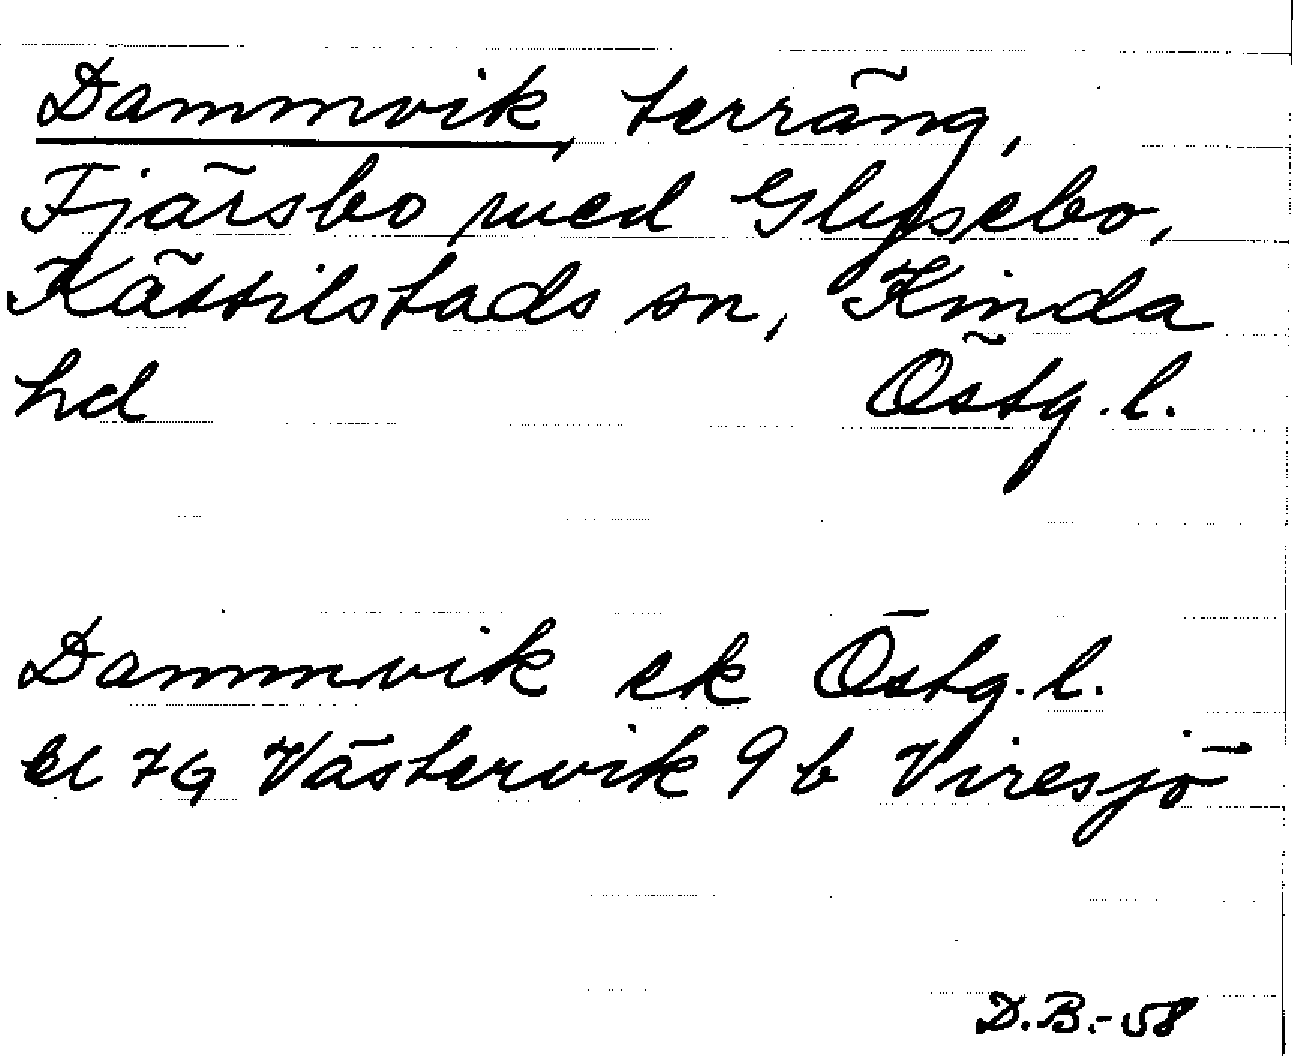 Dammvik, terräng,
Fjärsbo med Glysebo,
Kättilstads sn, Kinda
hd Östg. l.
Dammvik ek Östg. l.
bl 7G Västervik 9 b Viresjö
D.B.-58